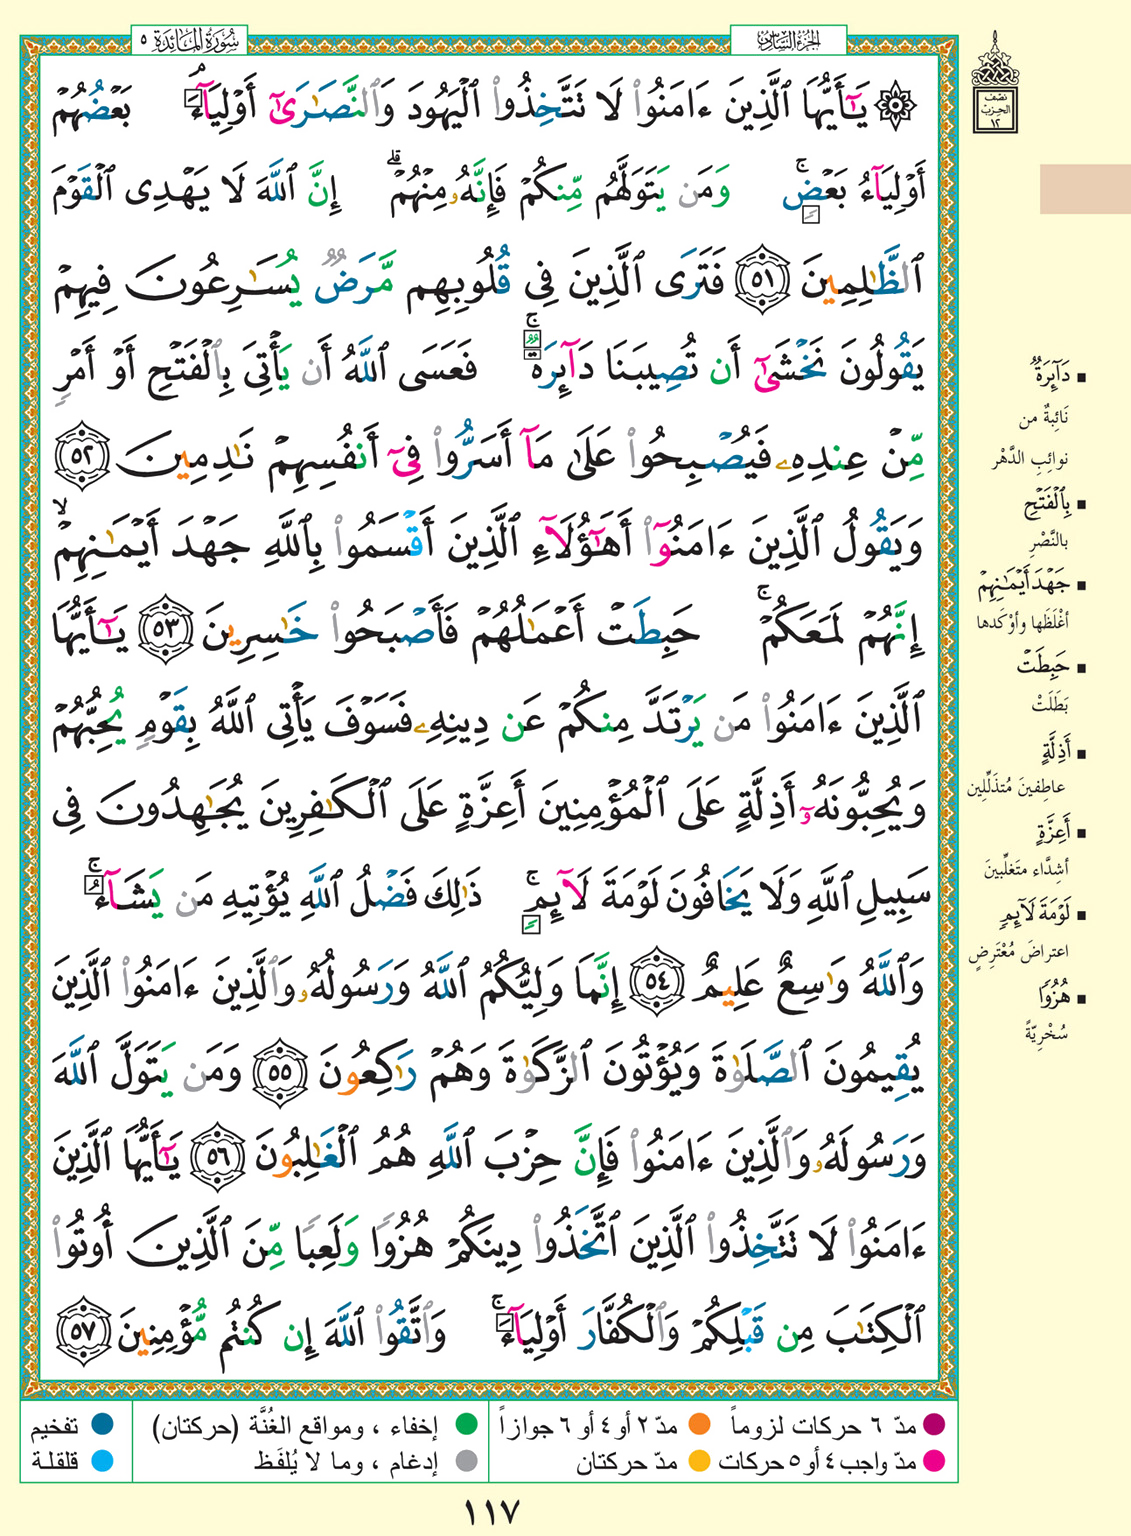 سُورَةُ المَائدَة ٥
الجزء السادس
۞ يَـٰٓأَيُّهَا ٱلَّذِينَ ءَامَنُوا۟ لَا تَتَّخِذُوا۟ ٱلْيَهُودَ وَٱلنَّصَـٰرَىٰٓ أَوْلِيَآءَ ۘ بَعْضُهُمْ
أَوْلِيَآءُ بَعْضٍ ۚ وَمَن يَتَوَلَّهُم مِّنكُمْ فَإِنَّهُۥ مِنْهُمْ ۗ إِنَّ ٱللَّهَ لَا يَهْدِى ٱلْقَوْمَ
ٱلظَّـٰلِمِينَ ٥١ فَتَرَى ٱلَّذِينَ فِى قُلُوبِهِم مَّرَضٌ يُسَـٰرِعُونَ فِيهِمْ
يَقُولُونَ نَخْشَىٰٓ أَن تُصِيبَنَا دَآئِرَةٌ ۚ فَعَسَى ٱللَّهُ أَن يَأْتِىَ بِٱلْفَتْحِ أَوْ أَمْرٍ
مِّنْ عِندِهِۦ فَيُصْبِحُوا۟ عَلَىٰ مَآ أَسَرُّوا۟ فِىٓ أَنفُسِهِمْ نَـٰدِمِينَ ٥٢
وَيَقُولُ ٱلَّذِينَ ءَامَنُوٓا۟ أَهَـٰٓؤُلَآءِ ٱلَّذِينَ أَقْسَمُوا۟ بِٱللَّهِ جَهْدَ أَيْمَـٰنِهِمْ ۙ
إِنَّهُمْ لَمَعَكُمْ ۚ حَبِطَتْ أَعْمَـٰلُهُمْ فَأَصْبَحُوا۟ خَـٰسِرِينَ ٥٣ يَـٰٓأَيُّهَا
ٱلَّذِينَ ءَامَنُوا۟ مَن يَرْتَدَّ مِنكُمْ عَن دِينِهِۦ فَسَوْفَ يَأْتِى ٱللَّهُ بِقَوْمٍ يُحِبُّهُمْ
وَيُحِبُّونَهُۥٓ أَذِلَّةٍ عَلَى ٱلْمُؤْمِنِينَ أَعِزَّةٍ عَلَى ٱلْكَـٰفِرِينَ يُجَـٰهِدُونَ فِى
سَبِيلِ ٱللَّهِ وَلَا يَخَافُونَ لَوْمَةَ لَآئِمٍ ۚ ذَٰلِكَ فَضْلُ ٱللَّهِ يُؤْتِيهِ مَن يَشَآءُ ۚ
وَٱللَّهُ وَٰسِعٌ عَلِيمٌ ٥٤ إِنَّمَا وَلِيُّكُمُ ٱللَّهُ وَرَسُولُهُۥ وَٱلَّذِينَ ءَامَنُوا۟ ٱلَّذِينَ
يُقِيمُونَ ٱلصَّلَوٰةَ وَيُؤْتُونَ ٱلزَّكَوٰةَ وَهُمْ رَٰكِعُونَ ٥٥ وَمَن يَتَوَلَّ ٱللَّهَ
وَرَسُولَهُۥ وَٱلَّذِينَ ءَامَنُوا۟ فَإِنَّ حِزْبَ ٱللَّهِ هُمُ ٱلْغَـٰلِبُونَ ٥٦ يَـٰٓأَيُّهَا ٱلَّذِينَ
ءَامَنُوا۟ لَا تَتَّخِذُوا۟ ٱلَّذِينَ ٱتَّخَذُوا۟ دِينَكُمْ هُزُوًا وَلَعِبًا مِّنَ ٱلَّذِينَ أُوتُوا۟
ٱلْكِتَـٰبَ مِن قَبْلِكُمْ وَٱلْكُفَّارَ أَوْلِيَآءَ ۚ وَٱتَّقُوا۟ ٱللَّهَ إِن كُنتُم مُّؤْمِنِينَ ٥٧
نصف
الحزب
١٢
■ دَآئِرَةٌ
نَائِبةٌ من
نوائِبِ الدَّهْر
■ بِٱلْفَتْحِ
بالنَّصْرِ
■ جَهْدَ أَيْمَـٰنِهِمْ
أغْلَظَها وأوْكَدها
■ حَبِطَتْ
بَطَلَتْ
■ أَذِلَّةٍ
عاطِفينَ مُتذَلِّلِين
■ أَعِزَّةٍ
أشِدَّاء متَغلِّبينَ
■ لَوْمَةَ لَآئِمٍ
اعتراضَ مُعْتَرِضٍ
■ هُزُوًا
سُخْرِيّةً
مدّ ٦ حركات لزوماً ● مدّ ٢ أو ٤ أو ٦ جوازاً ● إخفاء ، ومواقع الغُنَّة (حركتان) ● تفخيم
مدّ واجب ٤ أو ٥ حركات ● مدّ حركتان ● إدغام ، وما لا يُلفَظ ● قلقلة
١١٧